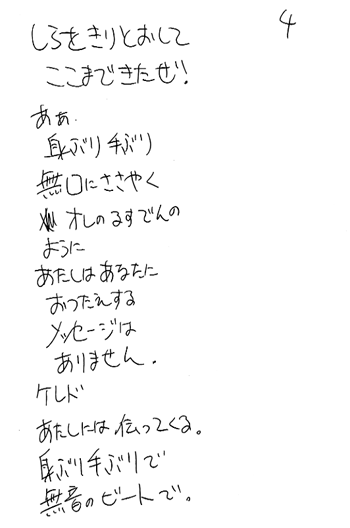 4
しろをきりとおして
ここまできたぜ!
あぁ.
身ぶり手ぶり
無口にささやく
オレのるすでんの
ように
あたしはあなたに
おつたえする
メッセージは
ありません.
ケレド
あたしには伝ってくる。
身ぶり手ぶりで
無音のビートで。